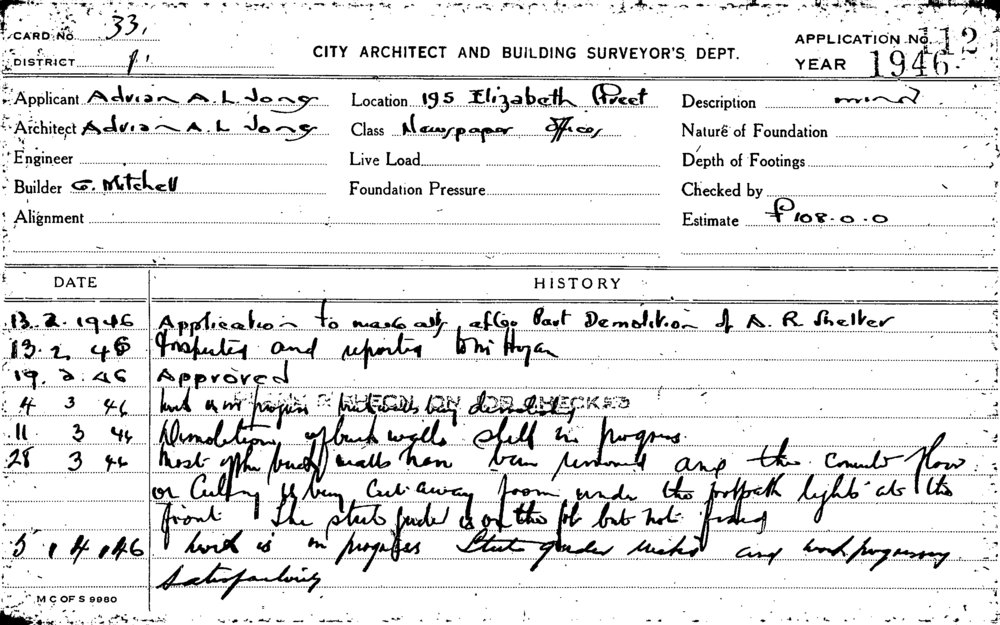 CARD No. 33.
DISTRICT 1.
CITY ARCHITECT AND BUILDING SURVEYOR'S DEPT.
APPLICATION No. 112
YEAR 1946
Applicant Adrian A. L Jong
Location 195 Elizabeth Street
Description
Architect Adrian A. L Jong
Class Newspaper Offices
Nature of Foundation
Engineer
Live Load
Depth of Footings
Builder G. Mitchell
Foundation Pressure
Checked by
Alignment
Estimate £108.0.0
DATE
HISTORY
13.2.1946 Application to after Part Demolition of A. R Shelter
13.2.46 Inspected and reported to Mr Hogan
19.2.46 Approved
4 3 46 Work is in progress brick walls being demolished
CHECKED
11 3 46 Demolition of brick walls still in progress
28 3 46 Most of the brick walls have been removed and the concrete floor
or ceiling is being cut away from under the footpath lights at the
front The steel girder is on the job but not fixed
5.4.46 Work is in progress Steel girder and work progressing
satisfactorily
M C OF S 9980